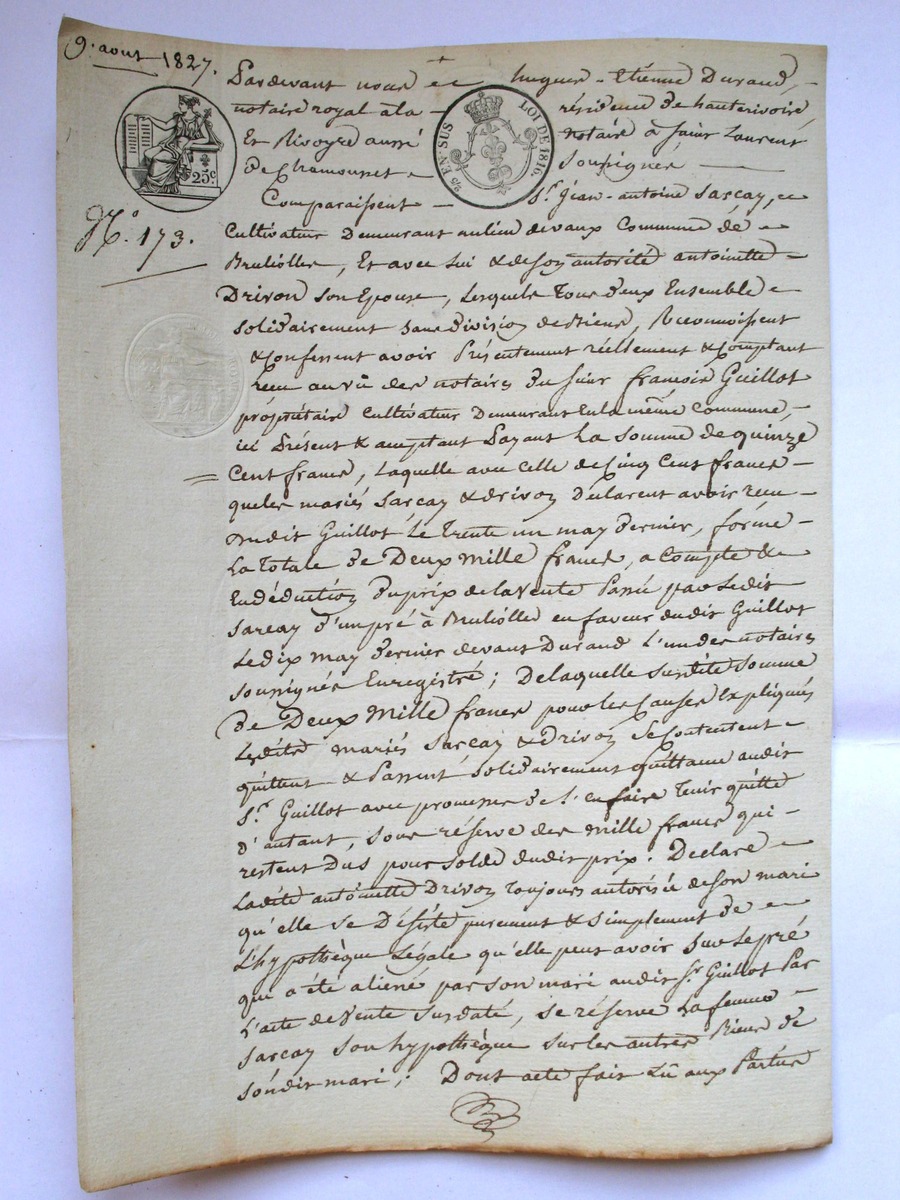 9. aout 1827.
Pardevant nous Hugues-Etienne Durand,
notaire royal à la résidence de hauterivoire,
Et Rivoyre aussi notaire à Saint Laurent
de Chamousset Soussignés
25c
EN SUS
LOI DE 1816
Comparaissent Sr. Jean-antoine Sarcay,
N.o 173.
Cultivateur Demeurant au lieu de vaux Commune de
Brullioles, Et avec lui & de son autorité antoinette
Drivon son Epouse, lesquels tous deux Ensemble
solidairement sans division de biens, Reconnoissent
& confessent avoir Présentement réellement & comptant
recu au vû des notaires du sieur françois Guillot
propriétaire Cultivateur Demeurant en la même Commune,
ici Présent & acceptant Payant La Somme de quinze
Cent francs, laquelle avec celle de Cinq Cent francs
que les mariés Sarcay & drivon déclarent avoir recu
dudit Guillot le trente un may dernier, forme
La totale de Deux mille francs, a compte &
En déduction du prix de la vente Passée par ledit
Sarcay d'un pré à Brullioles en faveur dudit Guillot
Le dix may dernier devant Durand l'un des notaires
soussignés Enregistré; De laquelle susdite somme
de Deux mille francs pour les causes Expliqués
Lesdits mariés Sarcay & Drivon se contentent
quittent & Passent solidairement quittance audit
Sr. Guillot avec promesse de l'en faire tenir quitte
d'autant, sous réserve des mille francs qui
restent dus pour solde dudit prix. Declare
Ladite antoinette Drivon toujours autorisée de son mari
qu'elle se Désiste purement & simplement de
L'hypothèque légale qu'elle peut avoir sur le pré
qui a été aliené par son mari audit Sr. Guillot Par
L'acte de vente susdaté, se réserve la femme
Sarcay son hypothèque sur les autres Biens de
sondit mari; Dont acte fait Lû aux Parties